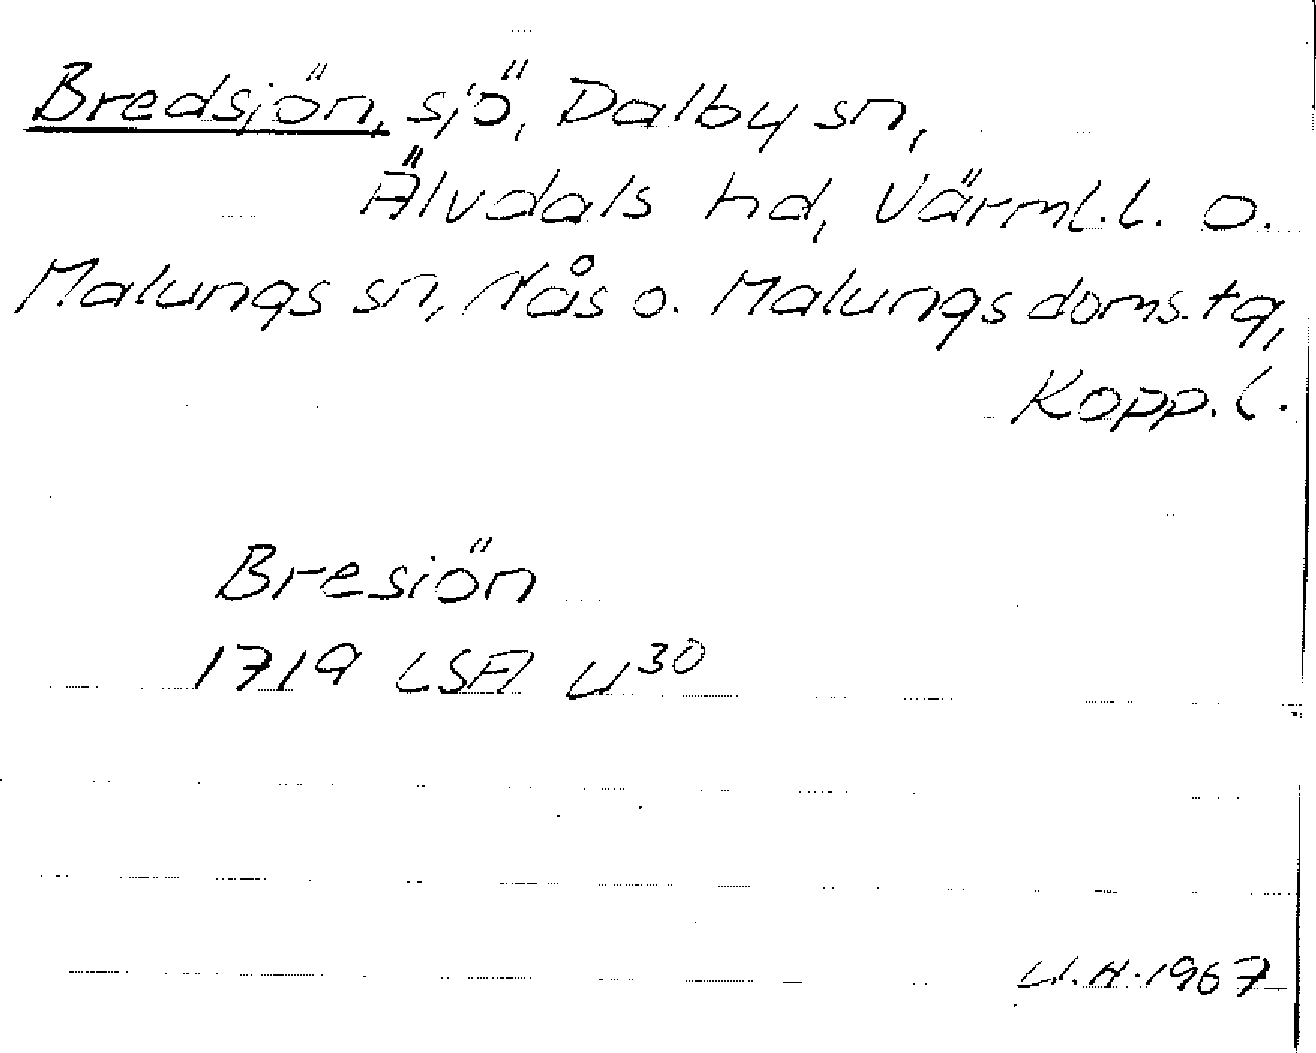 Bredsjön, sjö, Dalby sn,
Älvdals hd, Värml.l. o.
Malungs sn, Nås o. Malungs doms.tg,
Kopp.l.
Bresiön
1719 LSA U30
U.H.1967